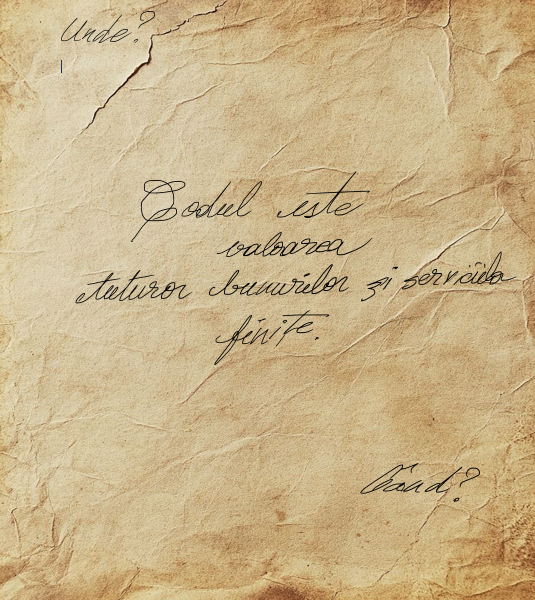 Unde?
Codul este
valoarea
tuturor bunurilor și serviciilo
finite.
Când?